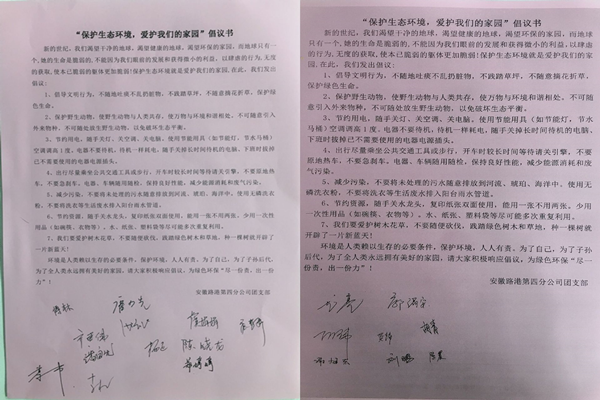 “保护生态环境，爱护我们的家园”倡议书
新的世纪，我们渴望干净的地球，渴望健康的地球，渴望环保的家园，而地球只有一
个，她的生命是脆弱的，不能因为我们眼前的发展和获得微小的利益，以肆虐的行为，无度
的获取，使本已脆弱的躯体更加脆弱！保护生态环境就是爱护我们的家园，在此，我们发出
倡议：
1、倡导文明行为，不随地吐痰不乱扔脏物，不践踏草坪，不随意摘花折草，保护绿
色生命。
2、保护野生动物，使野生动物与人类共存，使万物与环境和谐相处，不可随意引入
外来物种，不可随处放生野生动物，以免破坏生态平衡。
3、节约用电，随手关灯，关空调，关电脑，使用节能用具（如节能灯，节水马桶）
空调调高1度。电器不要待机，待机一样耗电，随手关掉长时待机的电脑，下班时拔掉已
不需要使用的电器电源插头。
4、出行尽量乘坐公共交通工具或步行，开车时较长时间等待请关引擎，不要原地热
车，不要急刹车。电器、车辆随用随检，保持良好性能，减少能源消耗和废气污染。
5、减少污染，不要将未处理的污水随意排放到河流、琥珀、海洋中，使用无磷洗衣
粉，不要将洗衣等生活废水排入阳台雨水管道。
6、节约资源，随手关水龙头，复印纸张双面使用，能用一张不用两张，少用一次性
用品（如碗筷、衣物等）、水、纸张、塑料袋等尽可能多次重复利用。
7、我们要爱护树木花草，不要随便砍伐，践踏绿色树木和草地，种一棵树就开辟了
一片新蓝天！
环境是人类赖以生存的必要条件，保护环境，人人有责，为了自己，为了子孙后代，
为了全人类永远拥有美好的家园，请大家积极响应倡议，为绿色环保“尽一份责，出一份
力”！
安徽路港第四分公司团支部
“保护生态环境，爱护我们的家园”倡议书
新的世纪，我们渴望干净的地球，渴望健康的地球，渴望环保的家园，而地球
只有一个，她的生命是脆弱的，不能因为我们眼前的发展和获得微小的利益，以肆虐
的行为，无度的获取，使本已脆弱的躯体更加脆弱！保护生态环境就是爱护我们的
家园，在此，我们发出倡议：
1、倡导文明行为，不随地吐痰不乱扔脏物，不践踏草坪，不随意摘花折草，
保护绿色生命。
2、保护野生动物，使野生动物与人类共存，使万物与环境和谐相处，不可随
意引入外来物种，不可随处放生野生动物，以免破坏生态平衡。
3、节约用电，随手关灯，关空调，关电脑，使用节能用具（如节能灯，节水
马桶）空调调高1度。电器不要待机，待机一样耗电，随手关掉长时待机的电脑，
下班时拔掉已不需要使用的电器电源插头。
4、出行尽量乘坐公共交通工具或步行，开车时较长时间等待请关引擎，不要
原地热车，不要急刹车。电器、车辆随用随检，保持良好性能，减少能源消耗和废
气污染。
5、减少污染，不要将未处理的污水随意排放到河流、琥珀、海洋中，使用无
磷洗衣粉，不要将洗衣等生活废水排入阳台雨水管道。
6、节约资源，随手关水龙头，复印纸张双面使用，能用一张不用两张，少用一
次性用品（如碗筷、衣物等）、水、纸张、塑料袋等尽可能多次重复利用。
7、我们要爱护树木花草，不要随便砍伐，践踏绿色树木和草地，种一棵树就
开辟了一片新蓝天！
环境是人类赖以生存的必要条件，保护环境，人人有责，为了自己，为了子孙
后代，为了全人类永远拥有美好的家园，请大家积极响应倡议，为绿色环保“尽一
份责，出一份力”！
安徽路港第四分公司团支部